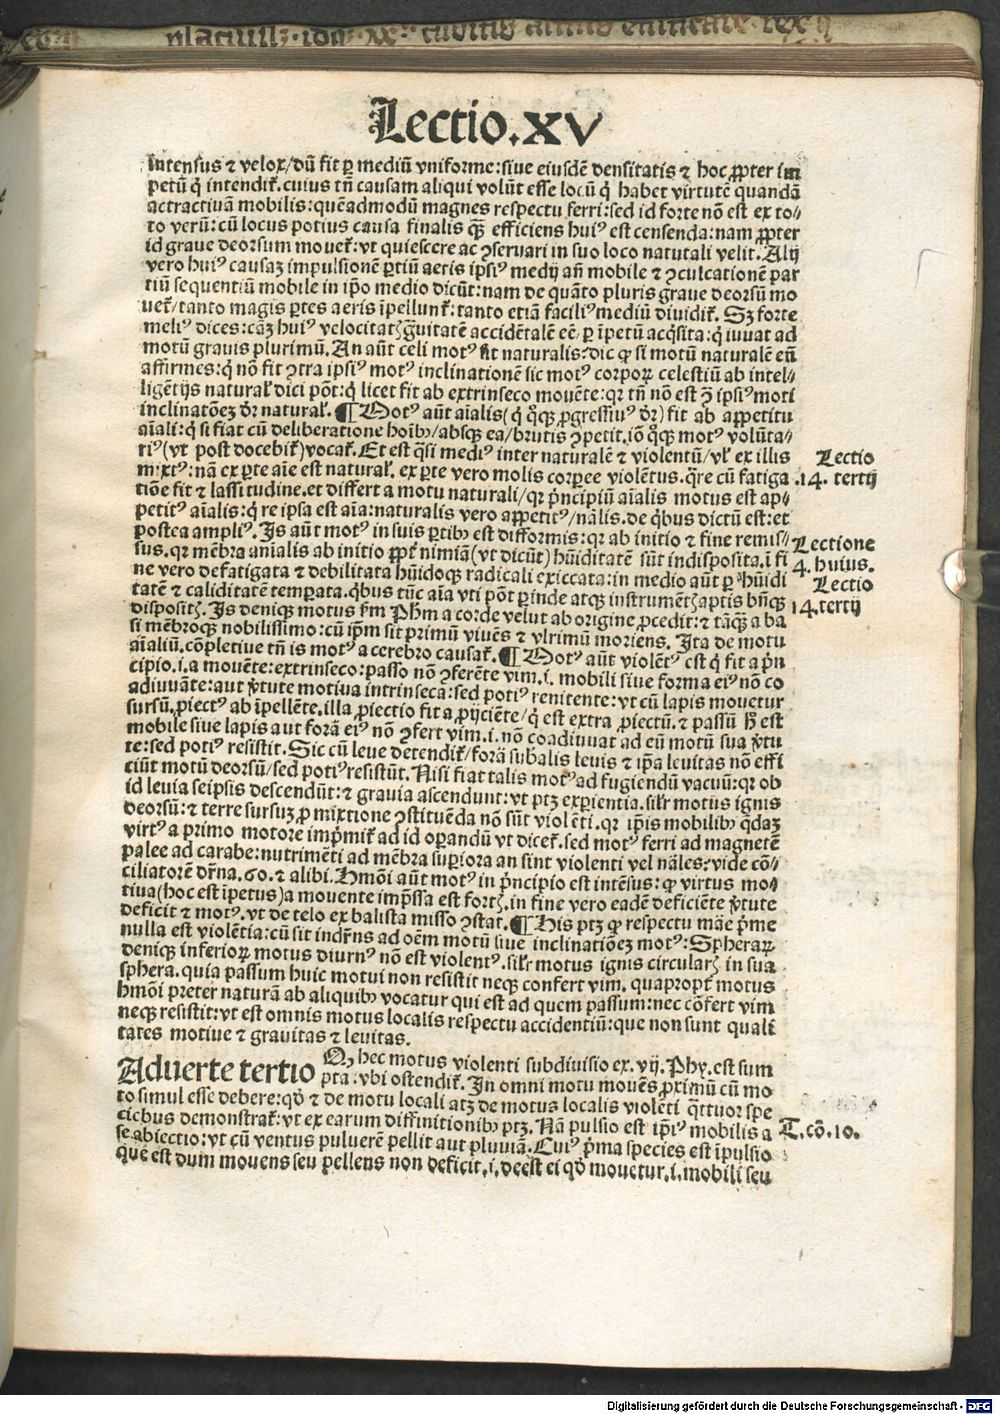 Lectio.XV
intensus ⁊ velox/dū fit ꝑ mediū vniforme:siue eiusdē densitatis ⁊ hoc ꝓpter im
petū q̇ intendit̃.cuius tñ causam aliqui volūt esse locū q̇ habet virtutē quandā
actractiuā mobilis:quēadmodū magnes respectu ferri:sed id forte nō est ex to/
to verū:cū locus potius causa finalis q̄ȝ efficiens huiꝰ est censenda:nam ꝓpter
id graue deorsum mouet̃:vt quiescere ac ꝯseruari in suo loco natutali velit.Alij
vero huiꝰ causaȝ impulsionē ꝑtiū aeris ipsiꝰ medij añ mobile ⁊ ꝯculcationē par
tiū sequentiū mobile in ip̄o medio dicūt:nam de quāto pluris graue deorsū mo
uet̃/tanto magis ꝑtes aeris īpellunt̃:tanto etiā faciliꝰ mediū diuidit̃. Sȝ forte
meliꝰ dices:cāȝ huiꝰ velocitatꝭ grauitatē accidētalē eē ꝑ īpetū acq̇sita:q̇ iuuat ad
motū grauis plurimū. An aūt celi motꝰ sit naturalis:dic ꝙ si motū naturalē eū
affirmes:q̇ nō fit ꝯtra ipsiꝰ motꝰ inclinationē sic motꝰ corpoꝝ celestiū ab intel/
ligētijs natural̃ dici pōt:q̇ licet fit ab extrinseco mouēte:qr tñ nō est ꝯ̄ ipsiꝰ moti
inclinatōeȝ dr̄ natural̃. ¶ Motꝰ aūt aīalis(q̇ q̇qȝ ꝓgressiuꝰ dr̄) fit ab appetitu
aīali:q̇ si fiat cū deliberatione hoībꝰ/absqȝ ea/brutis ꝯpetit.iō q̇qȝ motꝰ volūta/
riꝰ(vt post docebit̃)vocat̃. Et est q̄si mediꝰ inter naturalē ⁊ violentū/vl̃ ex illis
mixtꝰ:nā ex ꝑte aīe est natural̃. ex ꝑte vero molis corꝑee violētus.q̄re cū fatiga
tiōe fit ⁊ lassitudine.et differt a motu naturali/qr p̄ncipiū aīalis motus est ap/
petitꝰ aīalis:q̄ re ipsa est aīa:naturalis vero appetitꝰ/nālis.de q̇bus dictū est:et
postea ampliꝰ. Is aūt motꝰ in suis ꝑtibꝰ est difformis:qr ab initio ⁊ fine remis/
sus.qr mēbra animalis ab initio ꝓpt̃ nimiā(vt dicūt) hūiditatē sūt indisposita.ī fi
ne vero defatigata ⁊ debilitata hūidoqȝ radicali exiccata:in medio aūt ꝑ hūidi
tatē ⁊ caliditatē temꝑata.q̇bus tūc aīa vti pōt ꝑinde atqȝ instrumētꝭ aptis bn̄qȝ
dispositꝭ. Is deniqȝ motus ẜm Ph̄m a corde velut ab origine ꝓcedit:⁊ tāq̄ȝ a ba
si mēbroqȝ nobilissimo:cū ip̄m sit primū viuēs ⁊ vltimū moriens. Ita de motu
aīaliū.cōpletiue tñ is motꝰ a cerebro causat̃.¶ Motꝰ aūt violētꝰ est q̇ fit a p̄n
cipio.i.a mouēte:extrinseco:passo nō ꝯferēte vim.i. mobili siue forma eiꝰ nō co
adiuuāte:aut v̄tute motiua intrinseca:sed potiꝰ renitente:vt cū lapis mouetur
sursū.ꝓiectꝰ ab īpellēte.illa ꝓiectio fit a ꝓijciēte/q̇ est extra ꝓiectū.⁊ passū hꝰ est
mobile siue lapis aut forā eiꝰ nō ꝯfert vim.i. nō coadiuuat ad eū motū sua v̄tu
te:sed potiꝰ resistit. Sic cū leue detendit̃/forā subalis leuis ⁊ ip̄a leuitas nō effi
ciūt motū deorsū/sed potiꝰ resistūt. Nisi fiat talis motꝰ ad fugiendū vacuū:qr ob
id leuia seipsis descendūt:⁊ grauia ascendunt:vt ptȝ experientia.sil̃r motus ignis
deorsū:⁊ terre sursuȝ ꝓ mixtione ꝯstituēda nō sūt violēti.qr ip̄is mobilibꝰ q̄daȝ
virtꝰ a primo motore imp̄mit̃ ad id oꝑandū vt dicet̃.sed motꝰ ferri ad magnetē
palee ad carabe:nutrimēti ad mēbra suꝑiora an sint violenti vel nāles:vide cō/
ciliatorē dr̄na.60.⁊ alibi. Hmōi aūt motꝰ in p̄ncipio est intēsus:ꝙ virtus mo/
tiua(hoc est īpetus)a mouente imp̄ssa est fortꝭ.in fine vero eadē deficiēte v̄tute
deficit ⁊ motꝰ.vt de telo ex balista misso ꝯstat.¶ His ptȝ ꝙ respectu māe p̄me
nulla est violētia:cū sit indr̄ns ad oēm motū siue inclinatiōeȝ motꝰ:Spheraꝝ
deniqȝ inferioꝝ motus diurnꝰ nō est violentꝰ.sil̃r motus ignis circularꝭ in sua
sphera.quia passum huic motui non resistit neqȝ confert vim. quapropt̃ motus
hmōi preter naturā ab aliquibꝰ vocatur qui est ad quem passum:nec cōfert vim
neqȝ resistit:vt est omnis motus localis respectu accidentiū:que non sunt quali
tates motiue ⁊ grauitas ⁊ leuitas.
Aduerte tertio Qꝫ hec motus violenti subdiuisio ex.vij.Phy.est sum
pta:vbi ostendit̃. In omni motu mouēs ꝓximū cū mo
to simul esse debere:qđ ⁊ de motu locali atqȝ de motus localis violēti q̄ttuor spe
ciebus demonstrat̃:vt ex earum diffinitionibꝰ ptȝ. Nā pulsio est ip̄iꝰ mobilis a
se abiectio:vt cū ventus puluerē pellit aut pluuiā. Cuiꝰ p̄ma species est īpulsio
que est dum mouens seu pellens non deficit.i.deest ei qđ mouetur.i.mobili seu
Lectio
.14. tertij
Lectione
4.huius.
Lectio
14.tertij
T.cō.10.
Digitalisierung gefördert durch die Deutsche Forschungsgemeinschaft - DFG